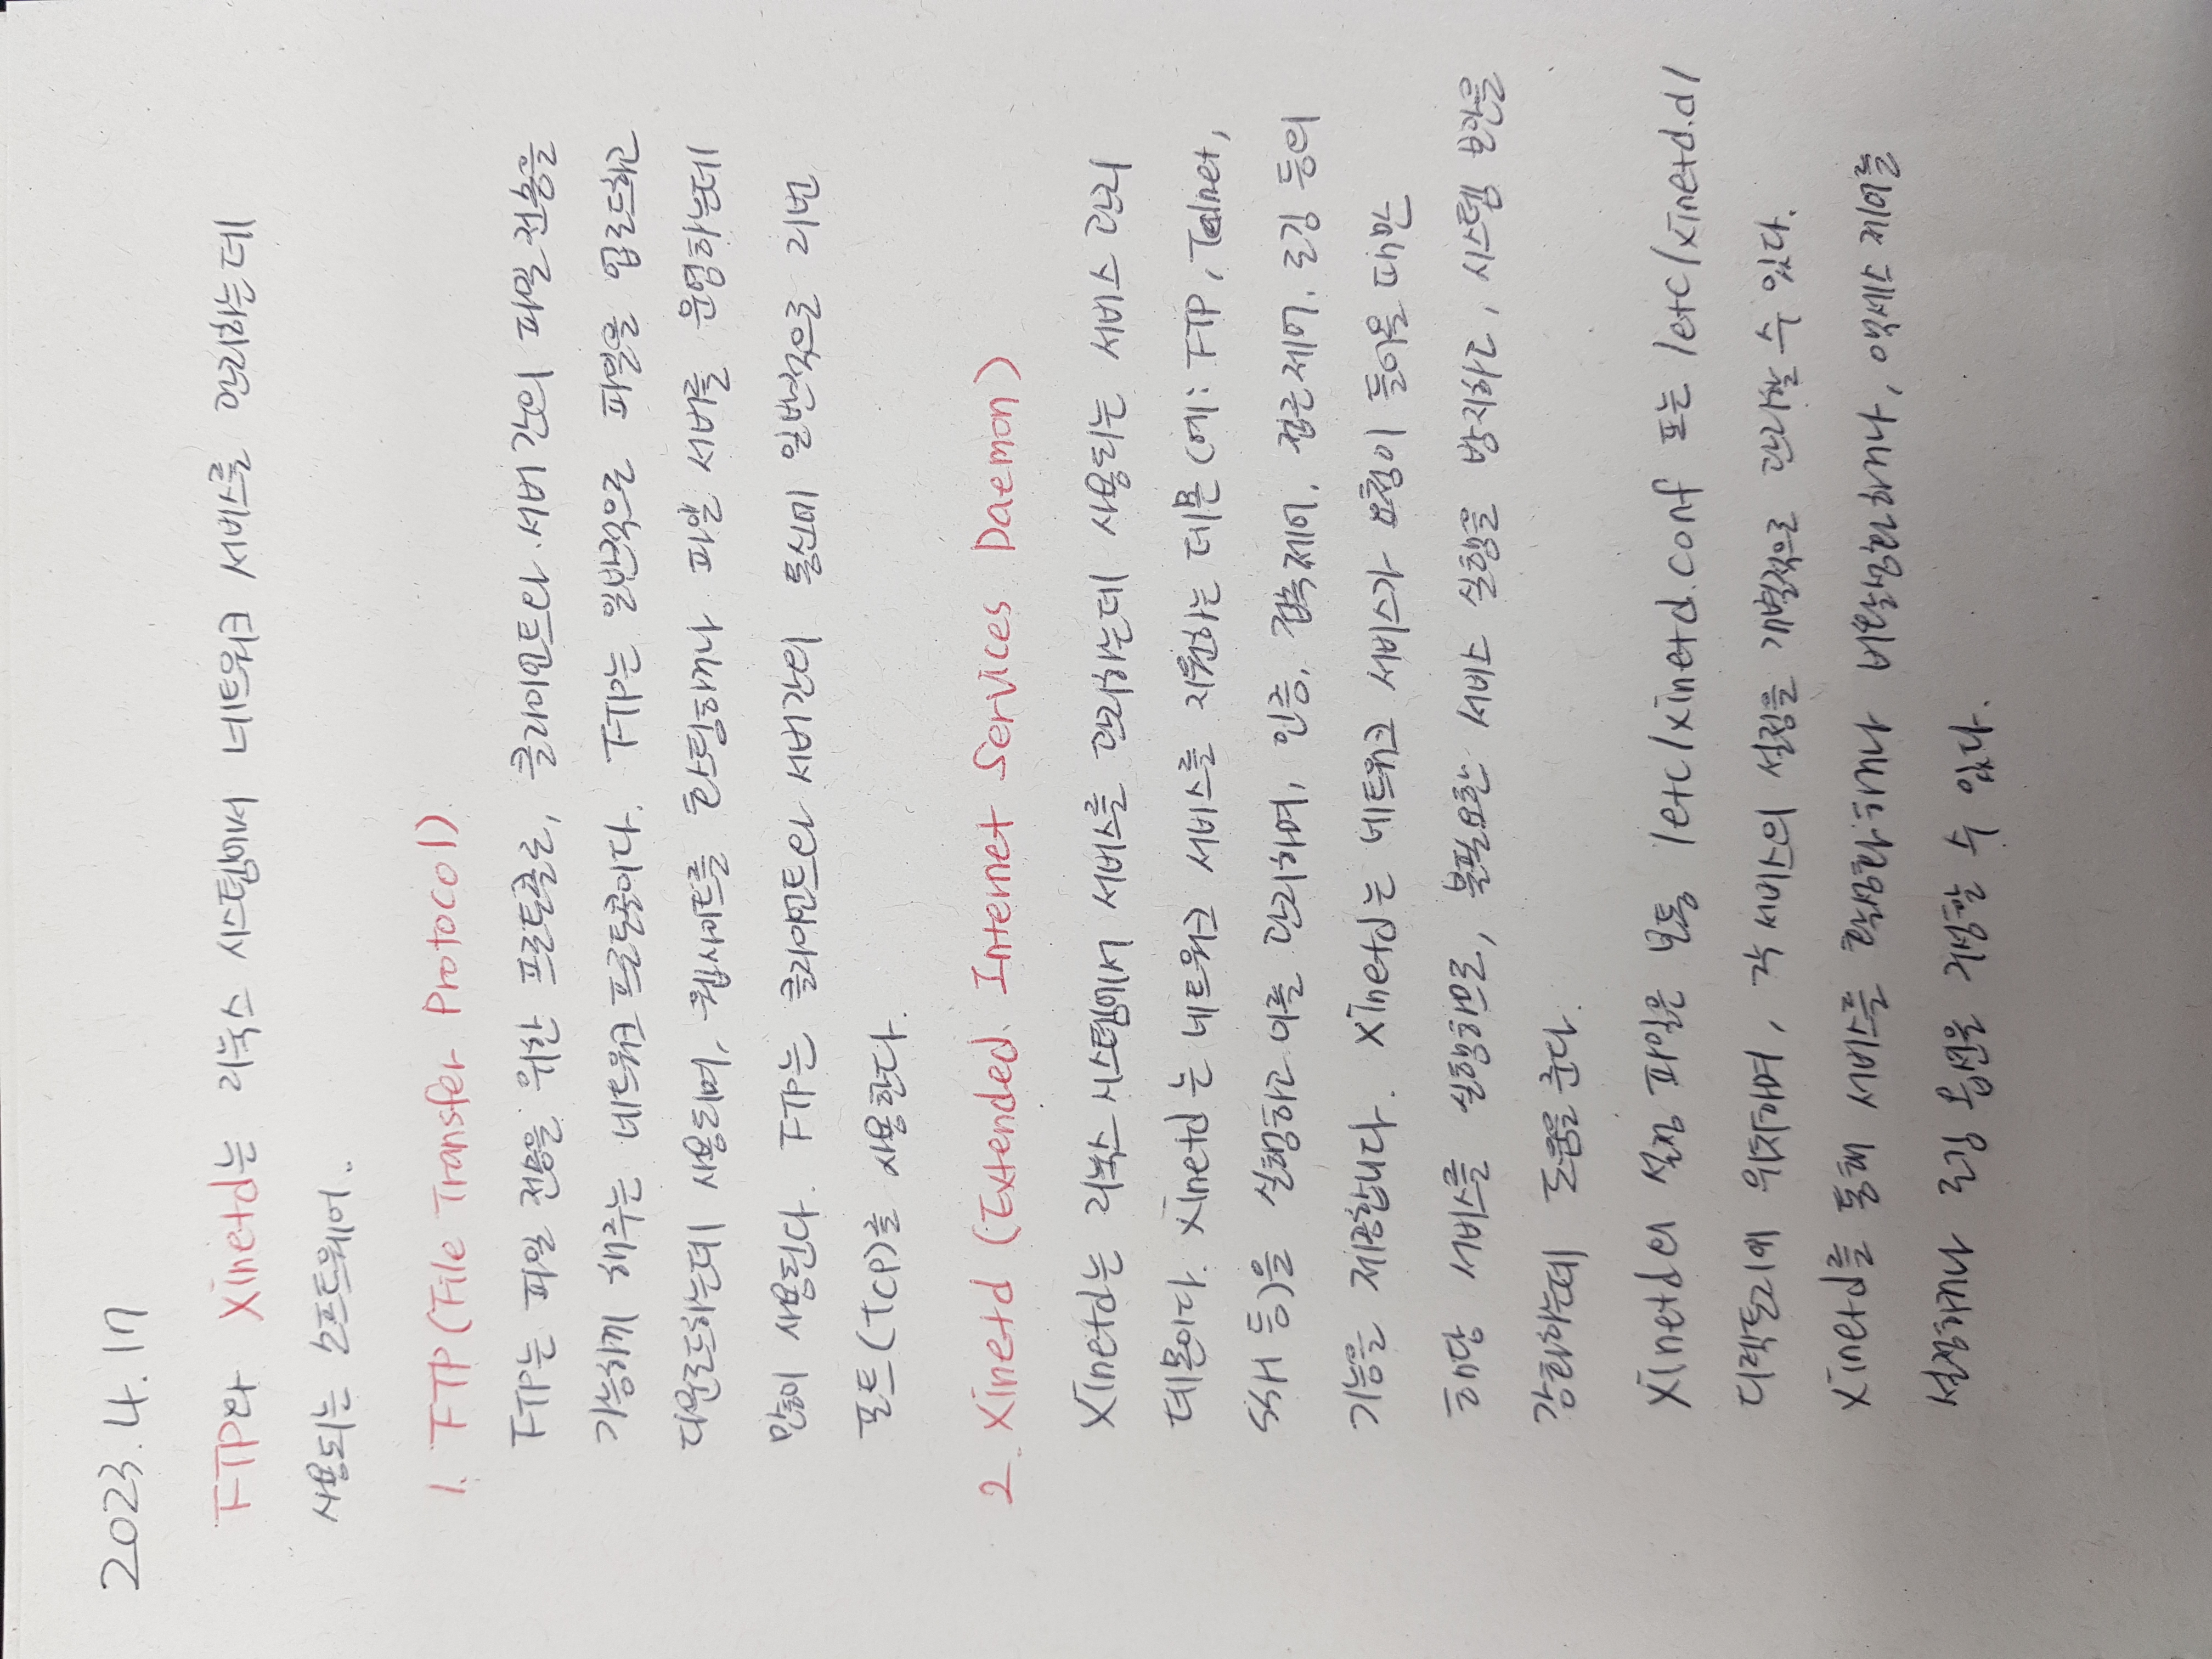 2023.4.17
FTP와 Xinetd는 리눅스 시스템에서 네트워크 서비스를 관리하는데
사용되는 소프트웨어.
1. FTP(File Transfer Protocol)
FTP는 파일 전송을 위한 프로토콜로, 클라이언트와 서버 간의 파일 전송을
가능하게 해주는 네트워크 프로토콜이다. FTP는 일반적으로 파일을 업로드하고
다운로드하는데 사용되며, 웹사이트를 호스팅하거나 파일 서버를 운영하는데
많이 사용된다. FTP는 클라이언트와 서버간의 통신에 일반적으로 21번
포트(TCP)를 사용한다.
2. Xinetd (Extended Internet Services Daemon)
Xinetd는 리눅스 시스템에서 서비스를 관리하는데 사용되는 서비스 관리
데몬이다. Xinetd는 네트워크 서비스를 지원하는 데몬 (예: FTP, Telnet,
SSH 등)을 실행하고 이를 관리하며, 인증, 접속제어, 접근제어, 로깅 등의
기능을 제공합니다. Xinetd는 네트워크 서비스가 요청이 들어올 때만
해당 서비스를 실행하므로, 불필요한 서비스 실행을 방지하고, 시스템 보안을
강화하는데 도움을 준다.
Xinetd의 설정 파일은 보통 /etc/xinetd.conf 또는 /etc/xinetd.d/
디렉토리에 위치하며, 각 서비스의 설정을 개별적으로 관리할 수 있다.
Xinetd를 통해 서비스를 활성화하거나 비활성화하거나, 액세스 제어를
설정하거나 로깅 옵션을 구성할 수 있다.